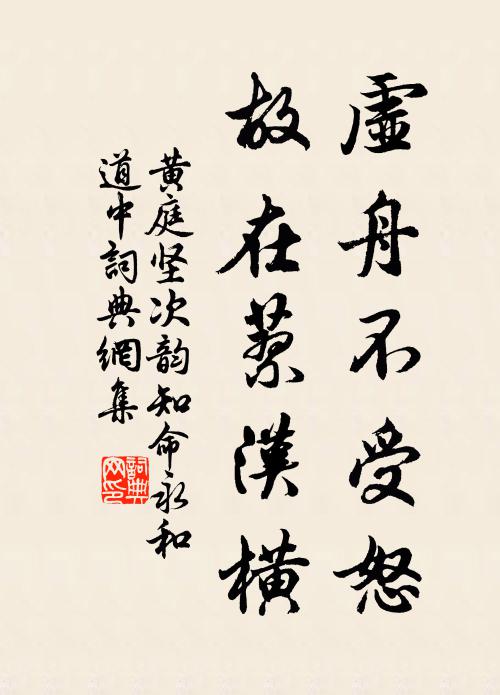 虛舟不受怒
故在蓼漢橫
黄庭坚次韵知命永和
道中詞典網集
詞典
网印